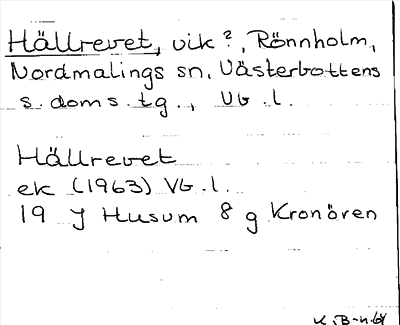 Hällrevet, vik?, Rönnholm,
Nordmalings sn, Västerbottens
s. doms. tg., Vb. l.
Hällrevet
ek (1963) Vb. l.
19 J Husum 8 g Kronören
K.B-n.64